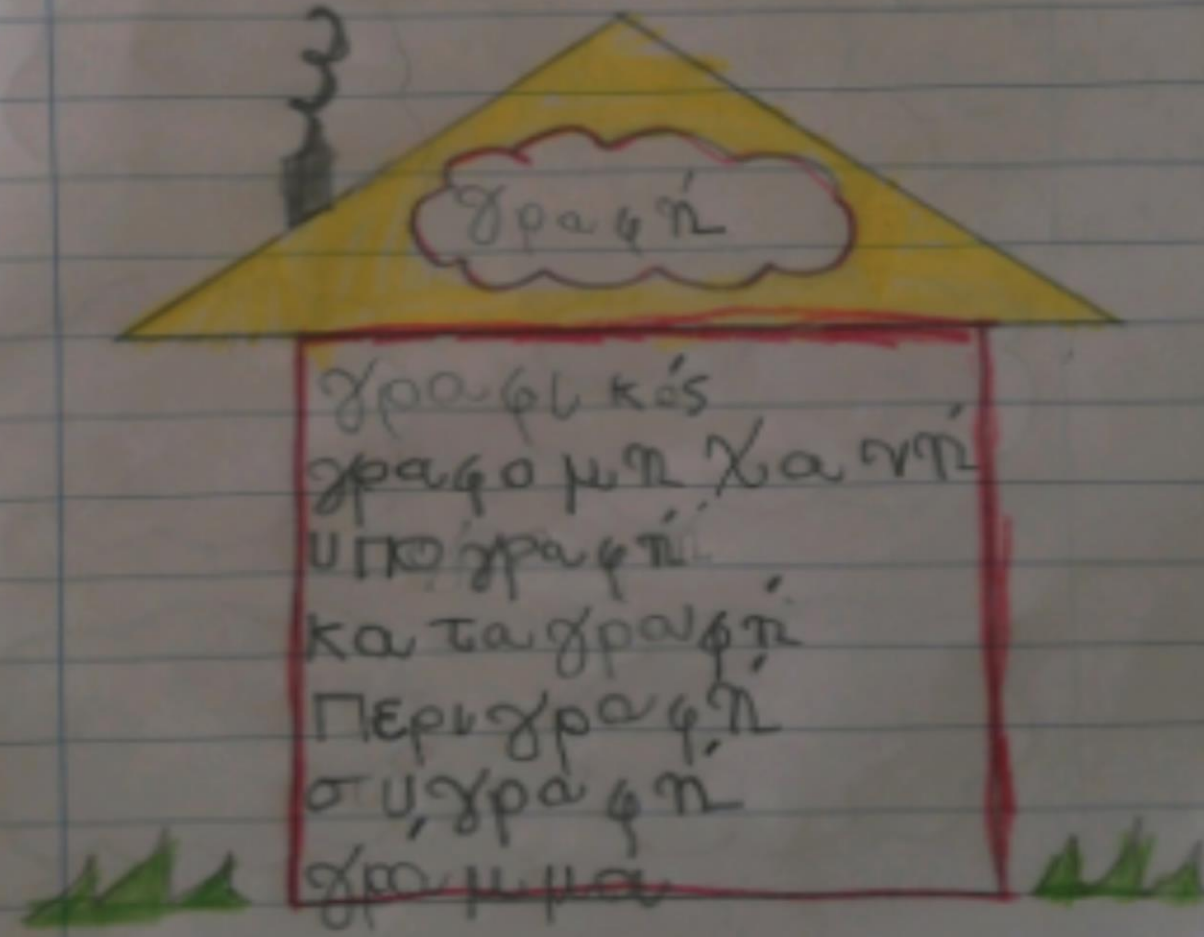 γραφή
γραφικός
γραφομηχανή
υπογραφή
καταγραφή
Περιγραφή
συγραφή
γραμμα